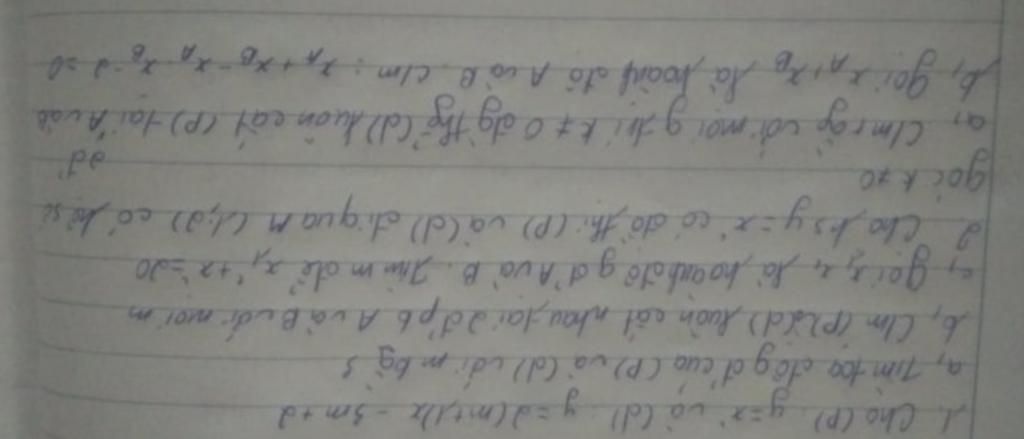 1. Cho (P): y = x² và (d): y = 2(m+1)x - 3m + 2
a, Tìm toạ độ gđ của (P) và (d) với m bg 3
b, C/m (P) và (d) luôn cắt nhau tại 2đ pb A và B với mọi m
c, gọi x₁, x₂ là hoành độ gđ A và B. Tìm m để x₁² + x₂² = 20
2. Cho h/s y = x² có đồ thị (P) và (d) đi qua M (1;2) có hệ số
góc k ≠ 0
a, C/m rằng với mọi g.trị k ≠ 0 đg thg (d) luôn cắt (P) tại 2đ A và B
b, gọi x_A, x_B là hoành độ A và B. C/m: x_A + x_B - x_A x_B - 2 = 0